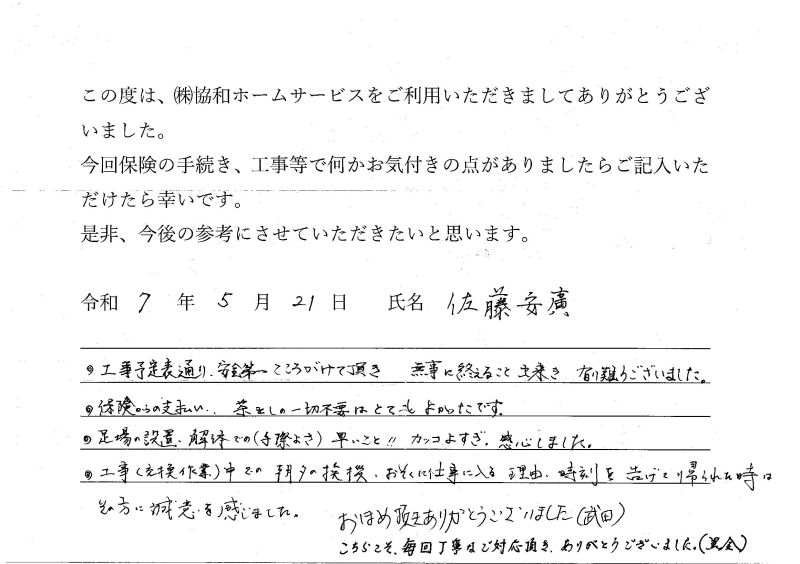 この度は、㈱協和ホームサービスをご利用いただきましてありがとうござ
いました。
今回保険の手続き、工事等で何かお気付きの点がありましたらご記入いた
だけたら幸いです。
是非、今後の参考にさせていただきたいと思います。
令和 7 年 5 月 21 日 氏名 佐藤安廣
◎工事予定表通り、安全第一こころがけて頂き 無事に終えること出来き 有り難うございました。
◎保険からの支払い、、茶出しの一切不要はとてもよかったです。
◎足場の設置、解体での(手際よさ) 早いこと!! カッコよすぎ、感心しました。
◎工事(交換作業)中での 朝夕の挨拶、仕事に入る理由、時刻を告げて帰られた時は
その方に誠意を感じました。
おほめ頂きありがとうございました(武田)
こちらこそ、毎回丁寧なご対応頂き、ありがとうございました。(黒金)